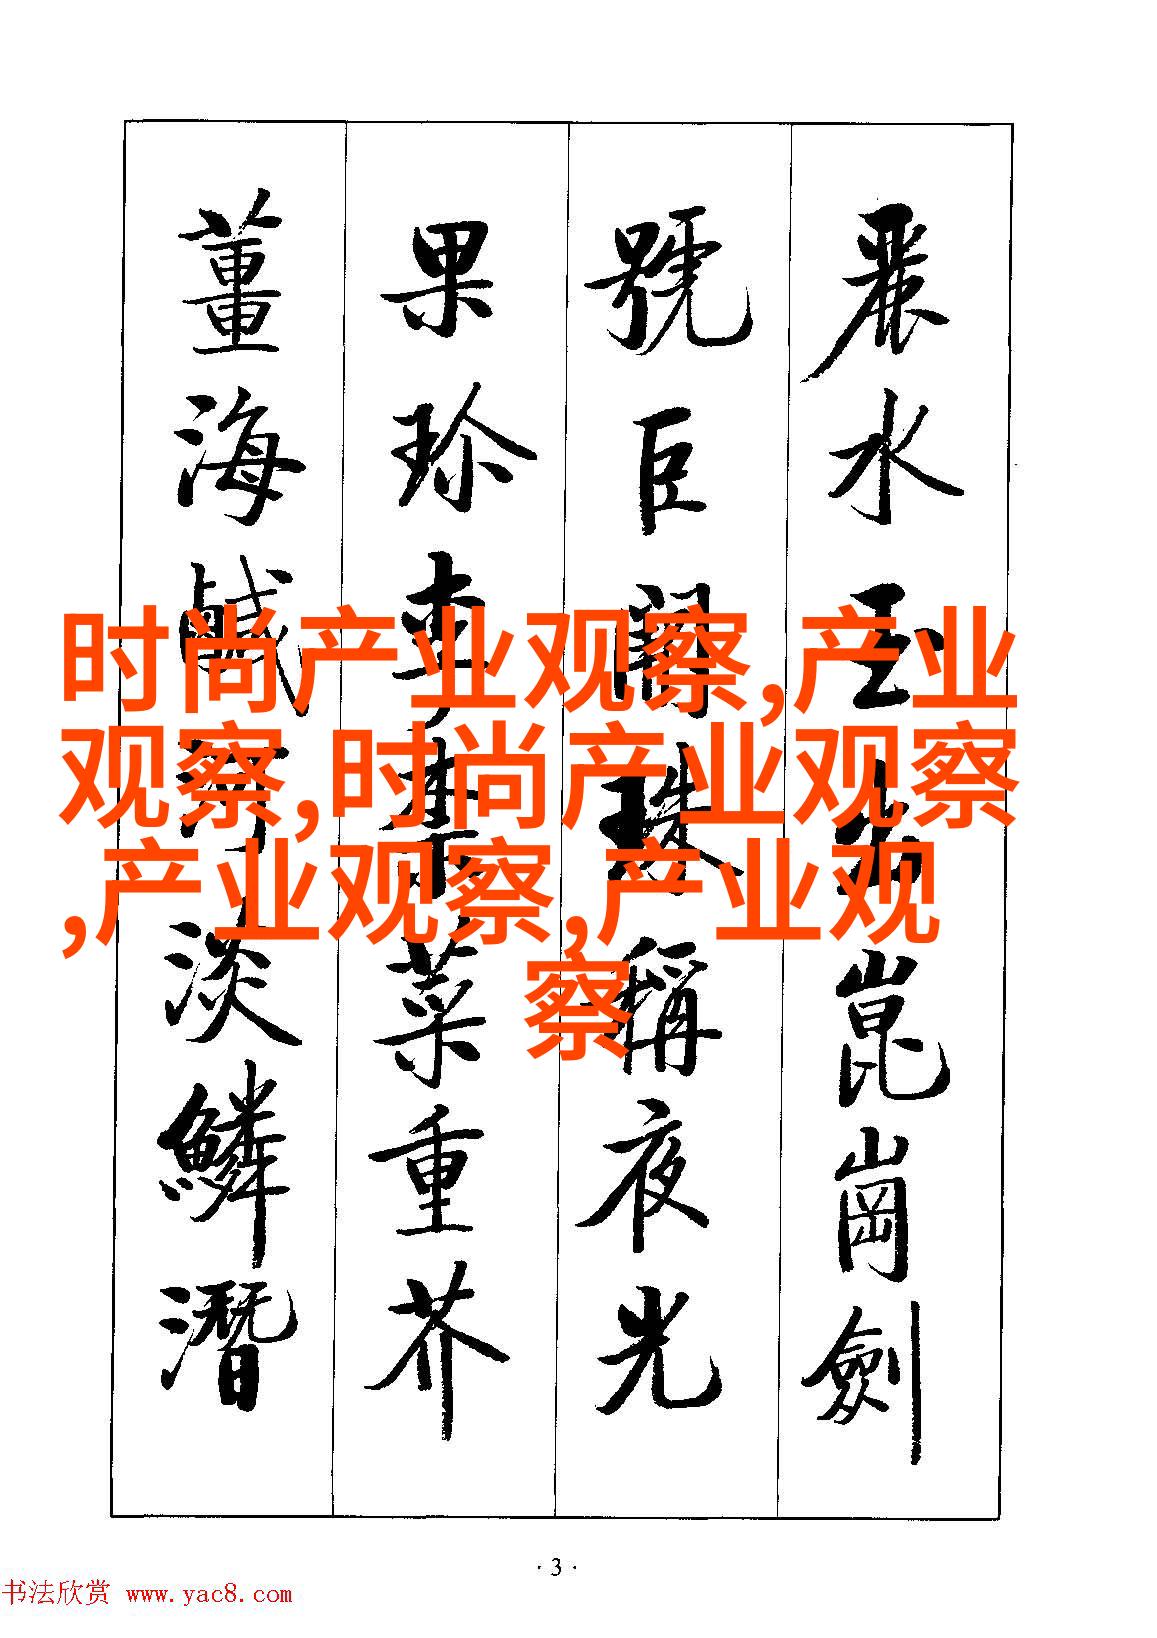 麗水玉出崑崗劍
號巨闕珠稱夜光
果珍李柰菜重芥
薑海鹹河淡鱗潛
时尚产业观察,产业
观察,时尚产业观察
,产业观察,产业观
察
·3·
书法欣赏 www.yac8.com